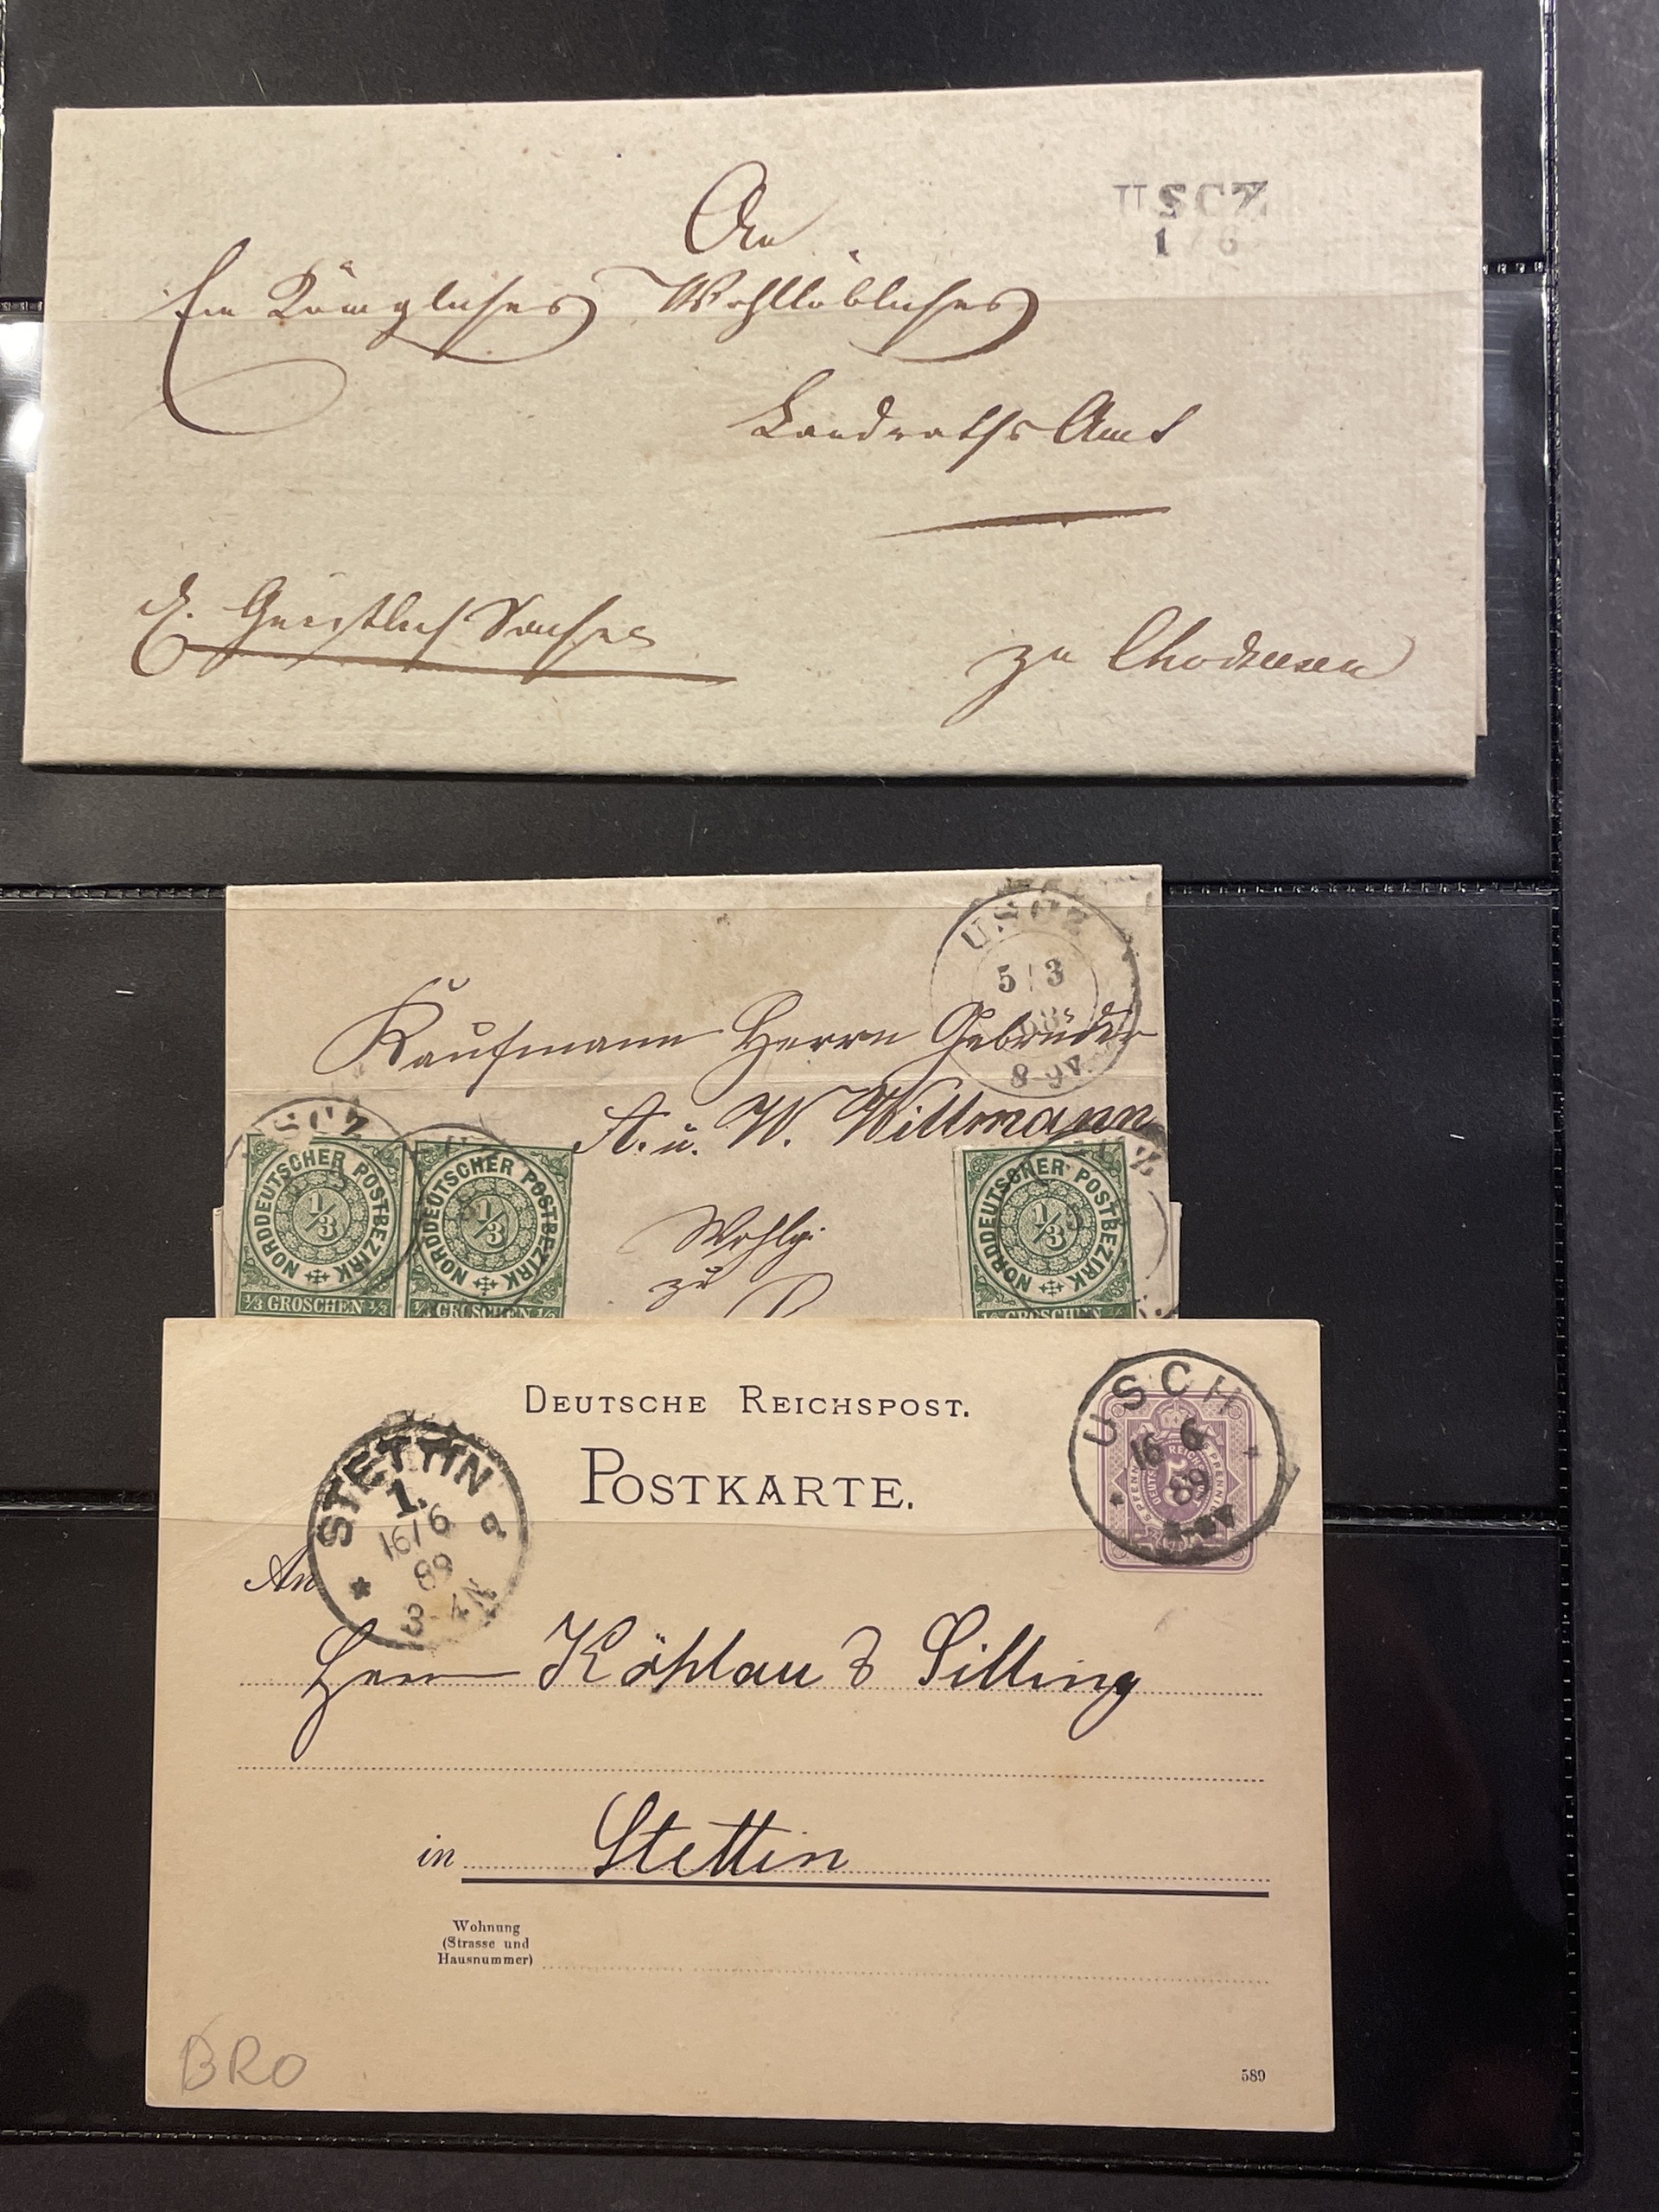 USCZ
1/6
An
Ein Königliches Wohllöbliches
Landraths Amt
zu Chodziesen
USCZ
5 3
68
8-9V.
Kaufmann Herrn Gebrüder
A. u. W. Wittmann
Wohlg.
zu
USCZ
NORDDEUTSCHER POSTBEZIRK
1/3
1/3 GROSCHEN 1/3
NORDDEUTSCHER POSTBEZIRK
1/3
1/3 GROSCHEN 1/3
NORDDEUTSCHER POSTBEZIRK
1/3
GROSCHEN
DEUTSCHE REICHSPOST.
POSTKARTE.
USCH
16 6
89
STETTIN
1.
16/6
89
3-4N
An
Herrn Köhlau & Silling
in Stettin
Wohnung
(Strasse und
Hausnummer)
BRO
589